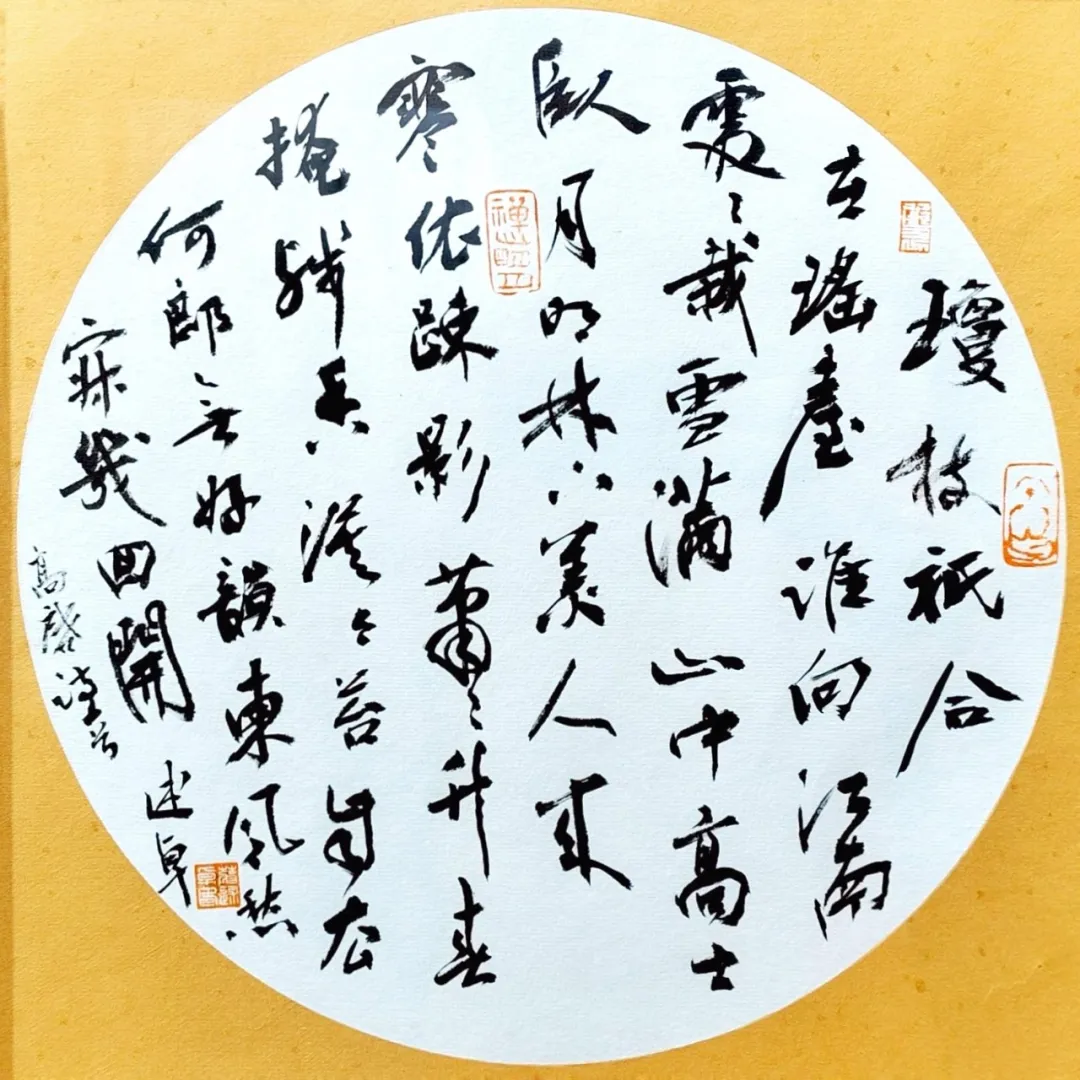 瓊枝祗合
在瑤臺誰向江南
處〻栽雪滿山中高士
臥月明林下美人來
寒依踈影蕭〻竹春
掩殘香漠〻苔自去
何郎無好韻東風愁
寂幾回開 述卓
高啟詩